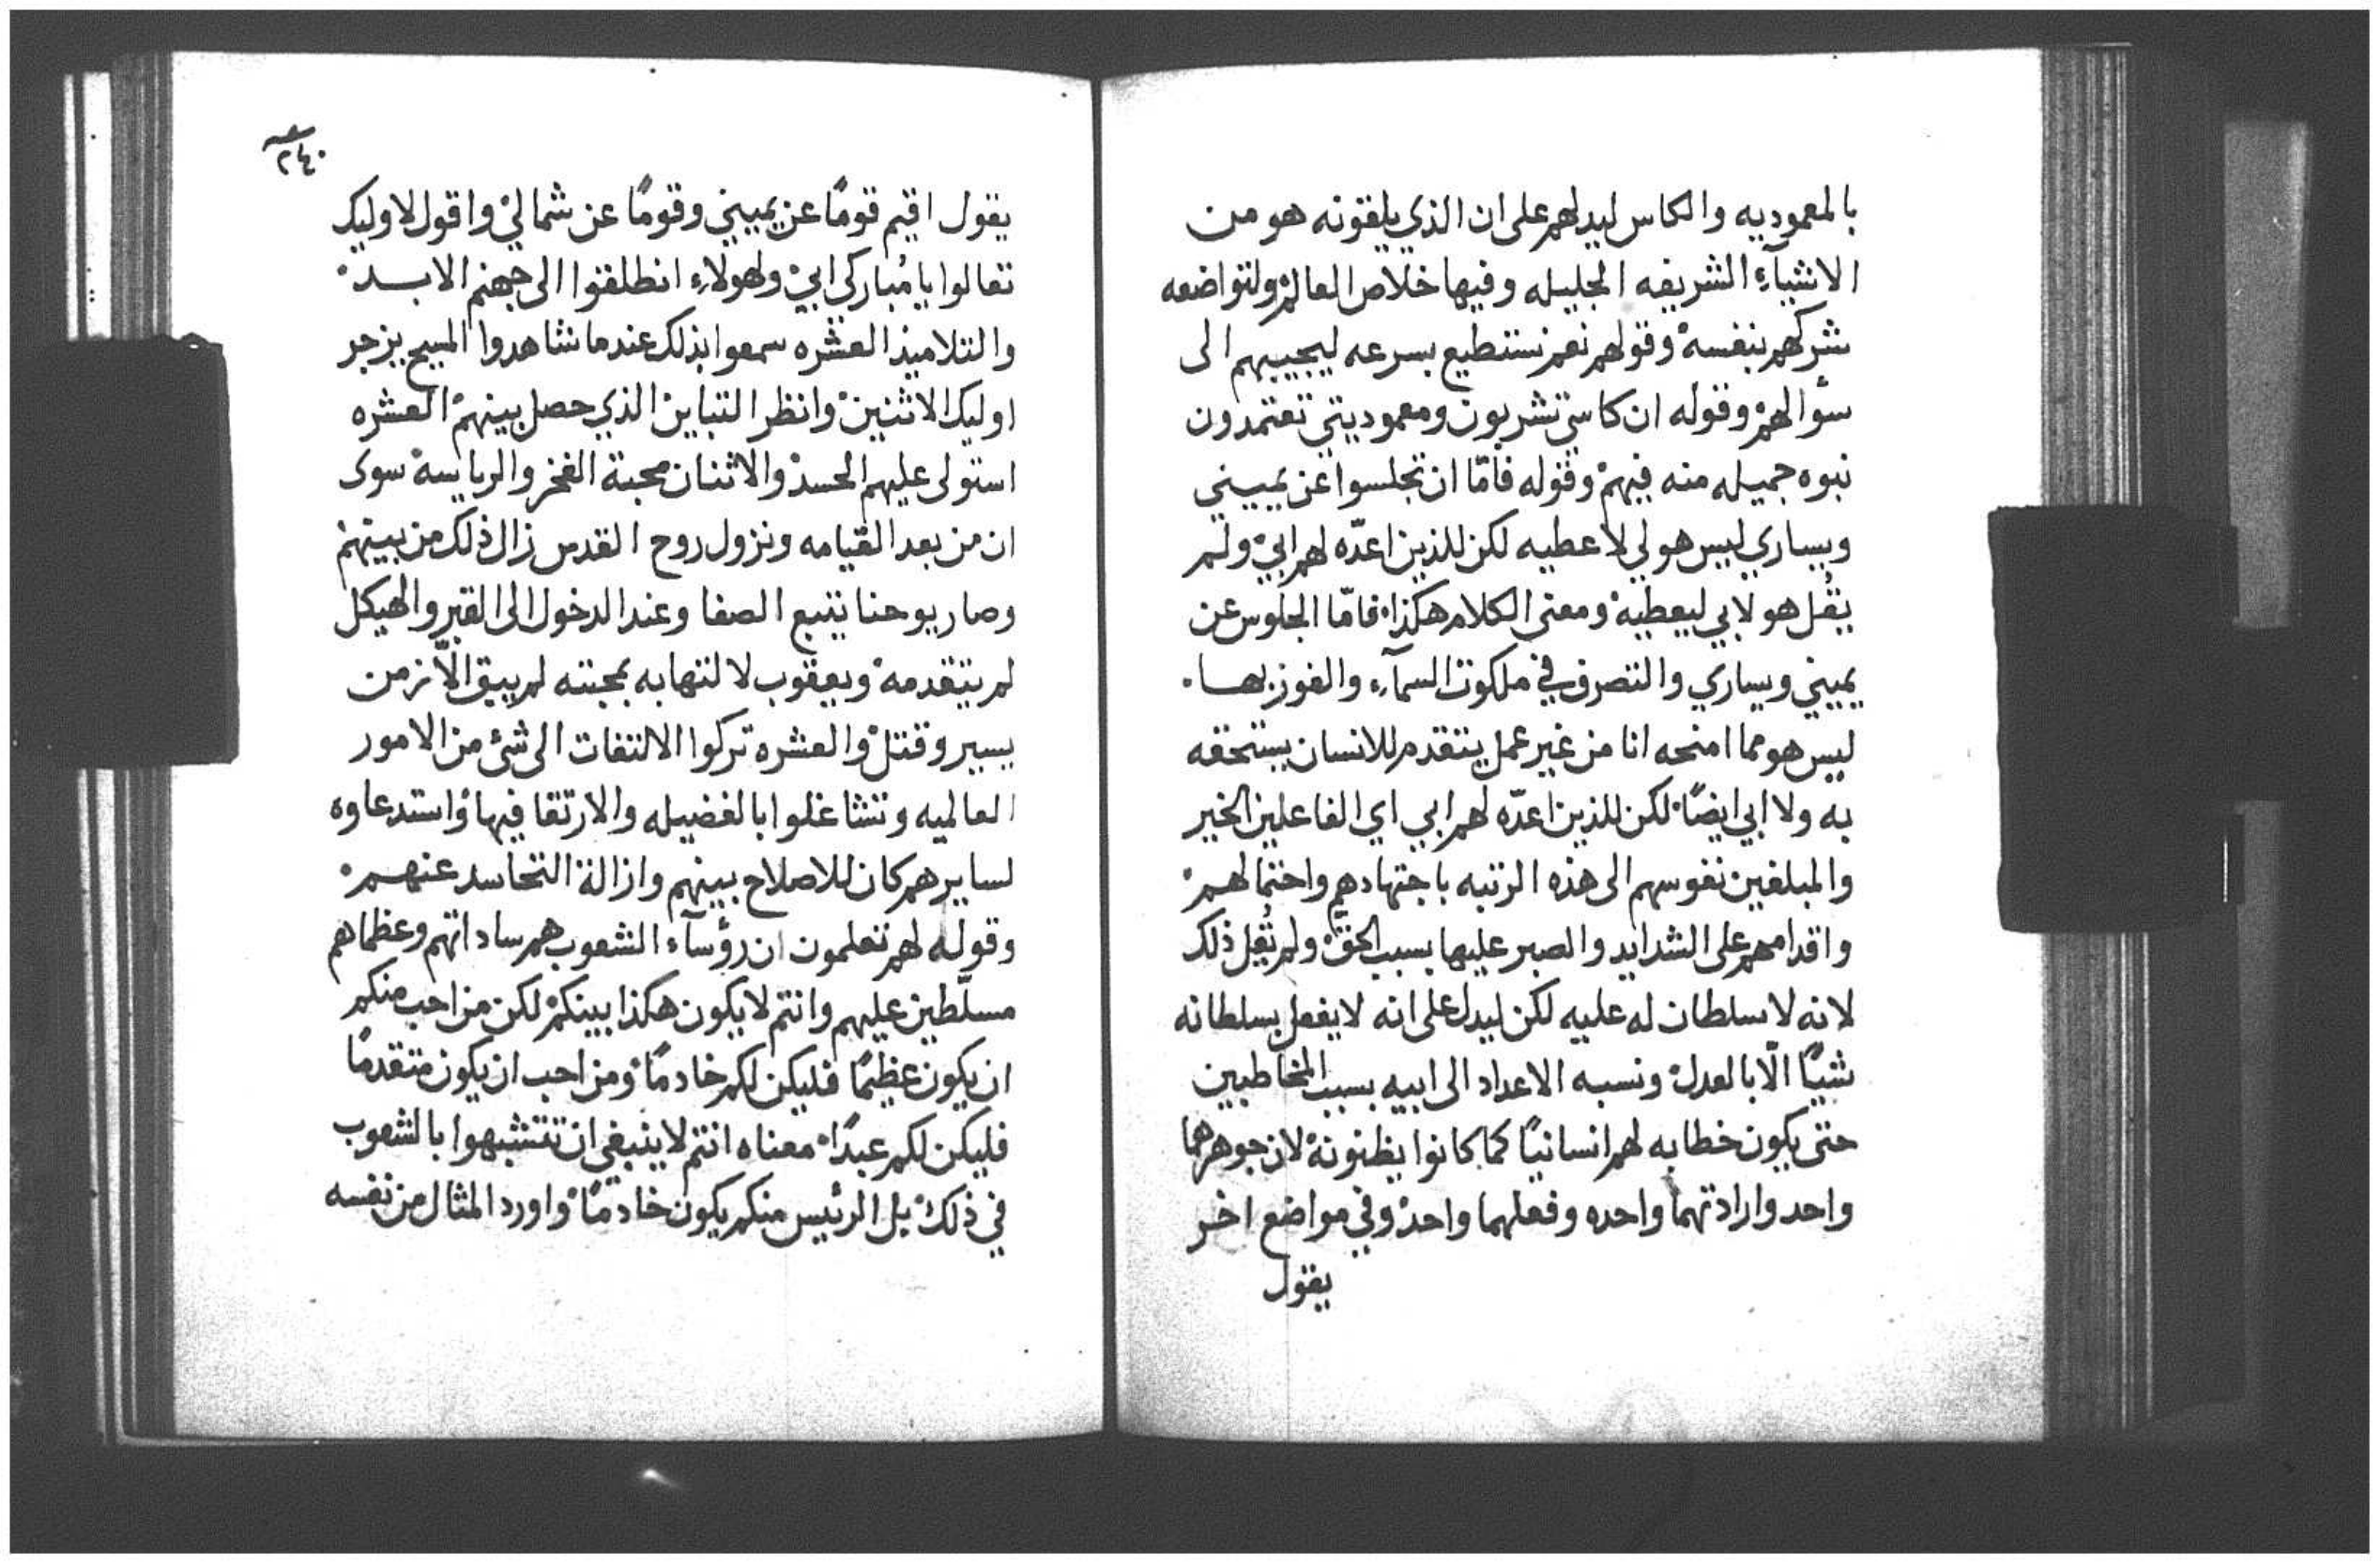 بالمعموديه والكاس ليدلهم على ان الذي يلقونه هو من
الاشيآء الشريفه الجليله وفيها خلاص العالم ولتواضعه
شركهم بنفسه وقولهم نعم نستطيع بسرعه ليجيبهم الى
سؤالهم وقوله ان كاسي تشربون ومعموديتي تعتمدون
نبوه جميله منه فيهم وقوله فامّا ان تجلسوا عن يميني
ويساري ليس هو لي لاعطيه لكن للذين اعدّه لهم ابي ولم
يقُل هو لابي ليعطيه ومعنى الكلام هكذا فامّا الجلوس عن
يميني ويساري والتصرف في ملكوت السمآء والفوز بها
ليس هو مما امنحه انا من غير عمل يتقدم للانسان يستحقه
به ولا ابي ايضًا لكن للذين اعدّه لهم ابي اي الفاعلين الخير
والمبلغين نفوسهم الى هذه الرتبه باجتهادهم واحتمالهم
واقدامهم على الشدايد والصبر عليها بسبب الحقّ ولم يُقل ذلك
لانه لا سلطان له عليه لكن ليدل على انه لا يفعل بسلطانه
شيًا الّا بالعدل ونسبه الاعداد الى ابيه بسبب المخاطبين
حتى يكون خطابه لهم انسانيًا كما كانوا يظنونه لان جوهرهما
واحد وارادتهما واحده وفعلهما واحد وفي مواضع اخر
يقول
٢٤٠
يقول اقيم قومًا عن يميني وقومًا عن شمالي واقول لاوليك
تعالوا يا مُباركي ابي ولهولاء انطلقوا الى جهنم الابد
والتلاميذ العشره سمعوا بذلك عندما شاهدوا المسيح يزجر
اوليك الاثنين وانظر التباين الذي حصل بينهم العشره
استولى عليهم الحسد والاثنان محبة الفخر والرياسه سوى
ان من بعد القيامه ونزول روح القدس زال ذلك من بينهم
وصار يوحنا يتبع الصفا وعند الدخول الى القبر والهيكل
لم يتقدمه ويعقوب لالتهابه بمحبته لم يبق الّا زمن
يسير وقتل والعشره تركوا الالتفات الى شئ من الامور
العالميه وتشاغلوا بالفضيله والارتقا فيها واستدعاوه
لسايرهم كان للاصلاح بينهم وازالة التحاسد عنهم
وقوله لهم تعلمون ان رؤسآء الشعوب هم ساداتهم وعظماهم
مسلّطين عليهم وانتم لا يكون هكذا بينكم لكن من احب منكم
ان يكون عظيمًا فليكن لكم خادمًا ومن احب ان يكون متقدمًا
فليكن لكم عبدًا معناه انتم لا ينبغي ان تتشبهوا بالشعوب
في ذلك بل الرئيس منكم يكون خادمًا واورد المثال من نفسه